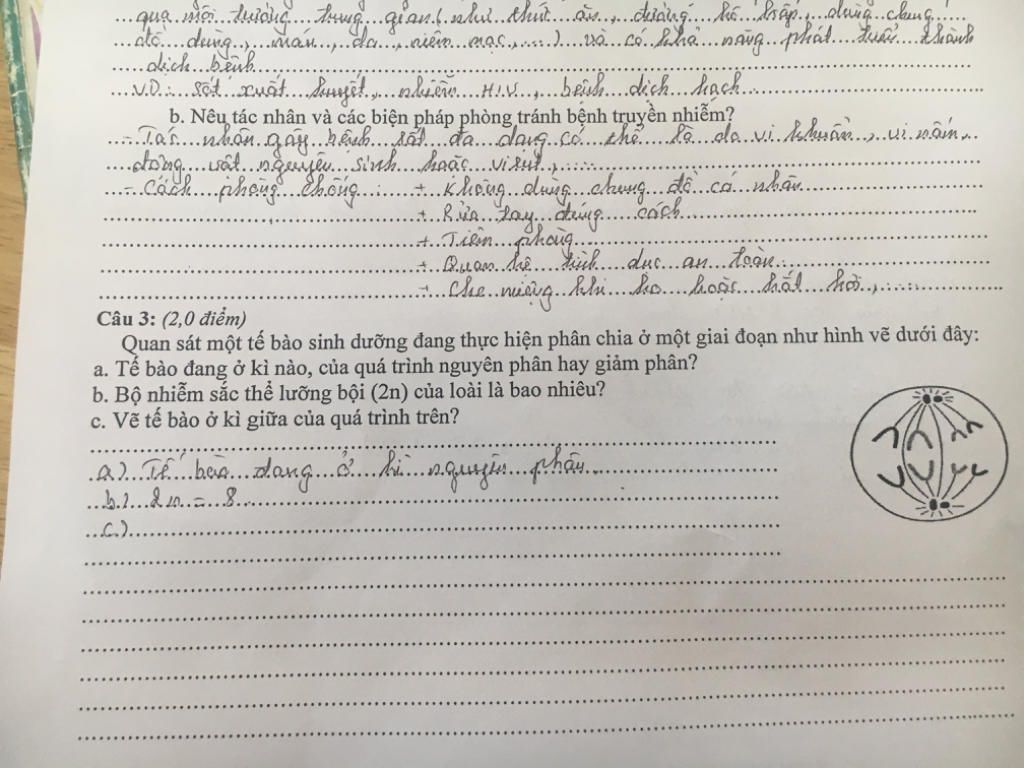 qua môi trường trung gian (như thức ăn, đường hô hấp, dùng chung
đồ dùng, máu, da, niêm mạc,....) và có khả năng phát triển thành
dịch bệnh
VD: sốt xuất huyết, nhiễm HIV, bệnh dịch hạch
b. Nêu tác nhân và các biện pháp phòng tránh bệnh truyền nhiễm?
- Tác nhân gây bệnh rất đa dạng có thể là do vi khuẩn, vi nấm,
động vật nguyên sinh hoặc virut,....
- Cách phòng chống: + Không dùng chung đồ cá nhân
+ Rửa tay đúng cách
+ Tiêm phòng
+ Quan hệ tình dục an toàn
+ Che miệng khi ho hoặc hắt hơi,....
Câu 3: (2,0 điểm)
Quan sát một tế bào sinh dưỡng đang thực hiện phân chia ở một giai đoạn như hình vẽ dưới đây:
a. Tế bào đang ở kì nào, của quá trình nguyên phân hay giảm phân?
b. Bộ nhiễm sắc thể lưỡng bội (2n) của loài là bao nhiêu?
c. Vẽ tế bào ở kì giữa của quá trình trên?
a) Tế bào đang ở kì nguyên phân
b) 2n = 8
c)